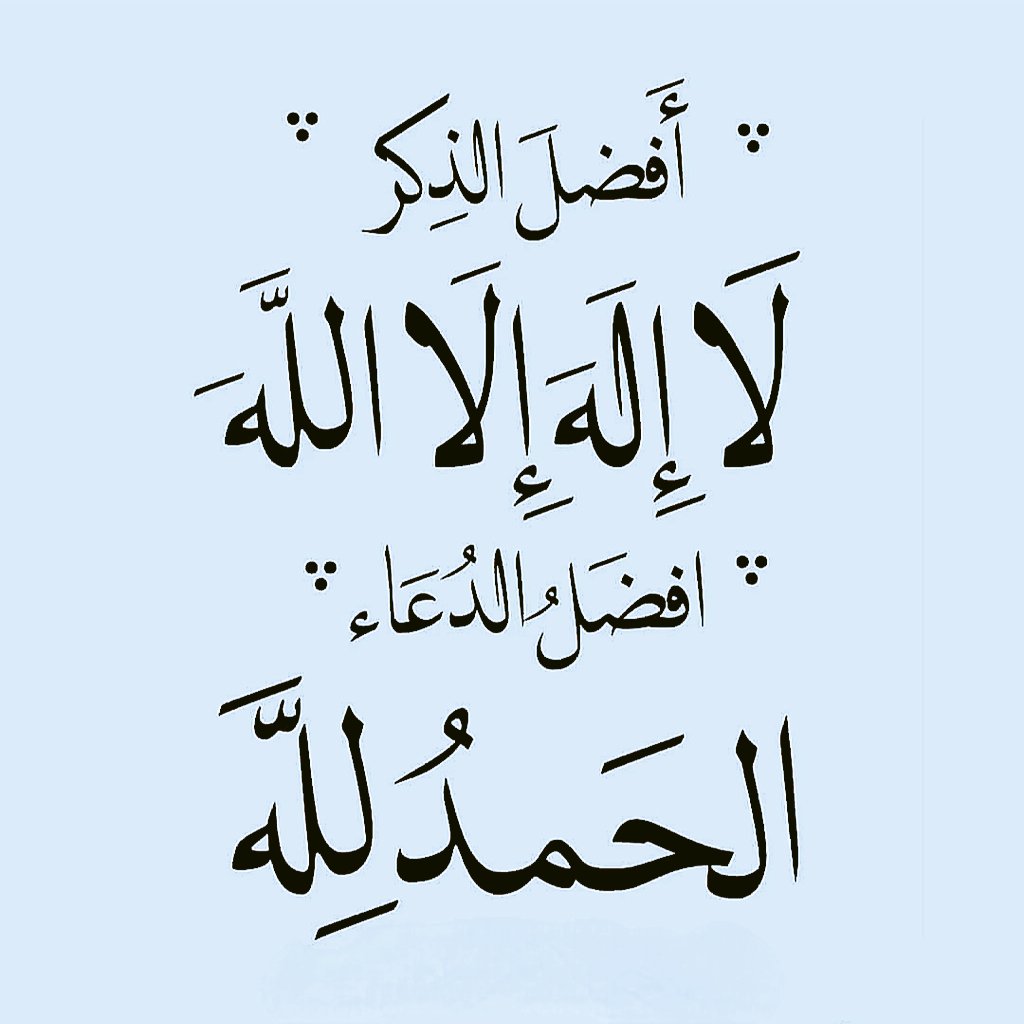 أَفضلَ الذِكر
لَا إِلَهَ إِلَا اللَّهَ
افضَلُ الدُعَاء
الحَمدُ لِلَّه